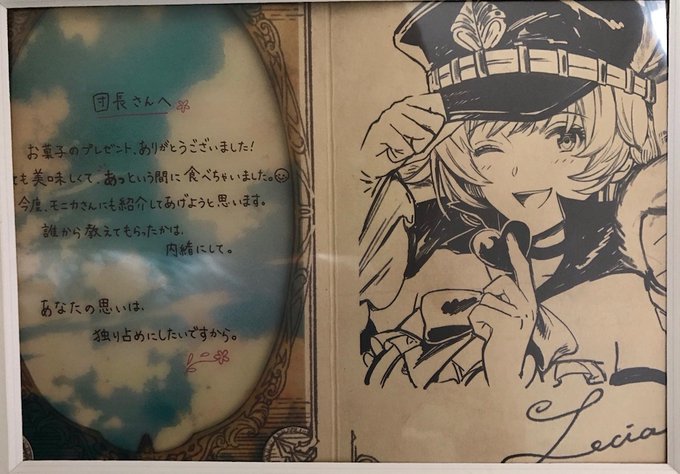 団長さんへ
お菓子のプレゼント、ありがとうございました!
ても美味しくて、あっという間に食べちゃいました。
今度、モニカさんにも紹介してあげようと思います。
誰から教えてもらったかは、
内緒にして。
あなたの思いは、
独り占めにしたいですから。
Lecia